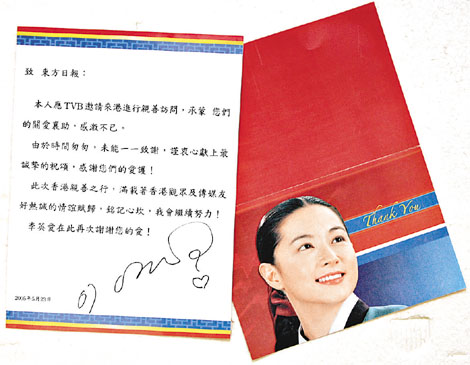 致 東方日報：
本人應TVB邀請來港進行親善訪問，承蒙 您們
的關愛襄助，感激不已。
由於時間匆匆，未能一一致謝，謹衷心獻上最
誠摯的祝頌，感謝您們的愛護！
此次香港親善之行，滿載著香港觀眾及傳媒友
好熱誠的情誼賦歸，銘記心坎，我會繼續努力！
李英愛在此再次謝謝您的愛！
2005年5月23日
Thank You